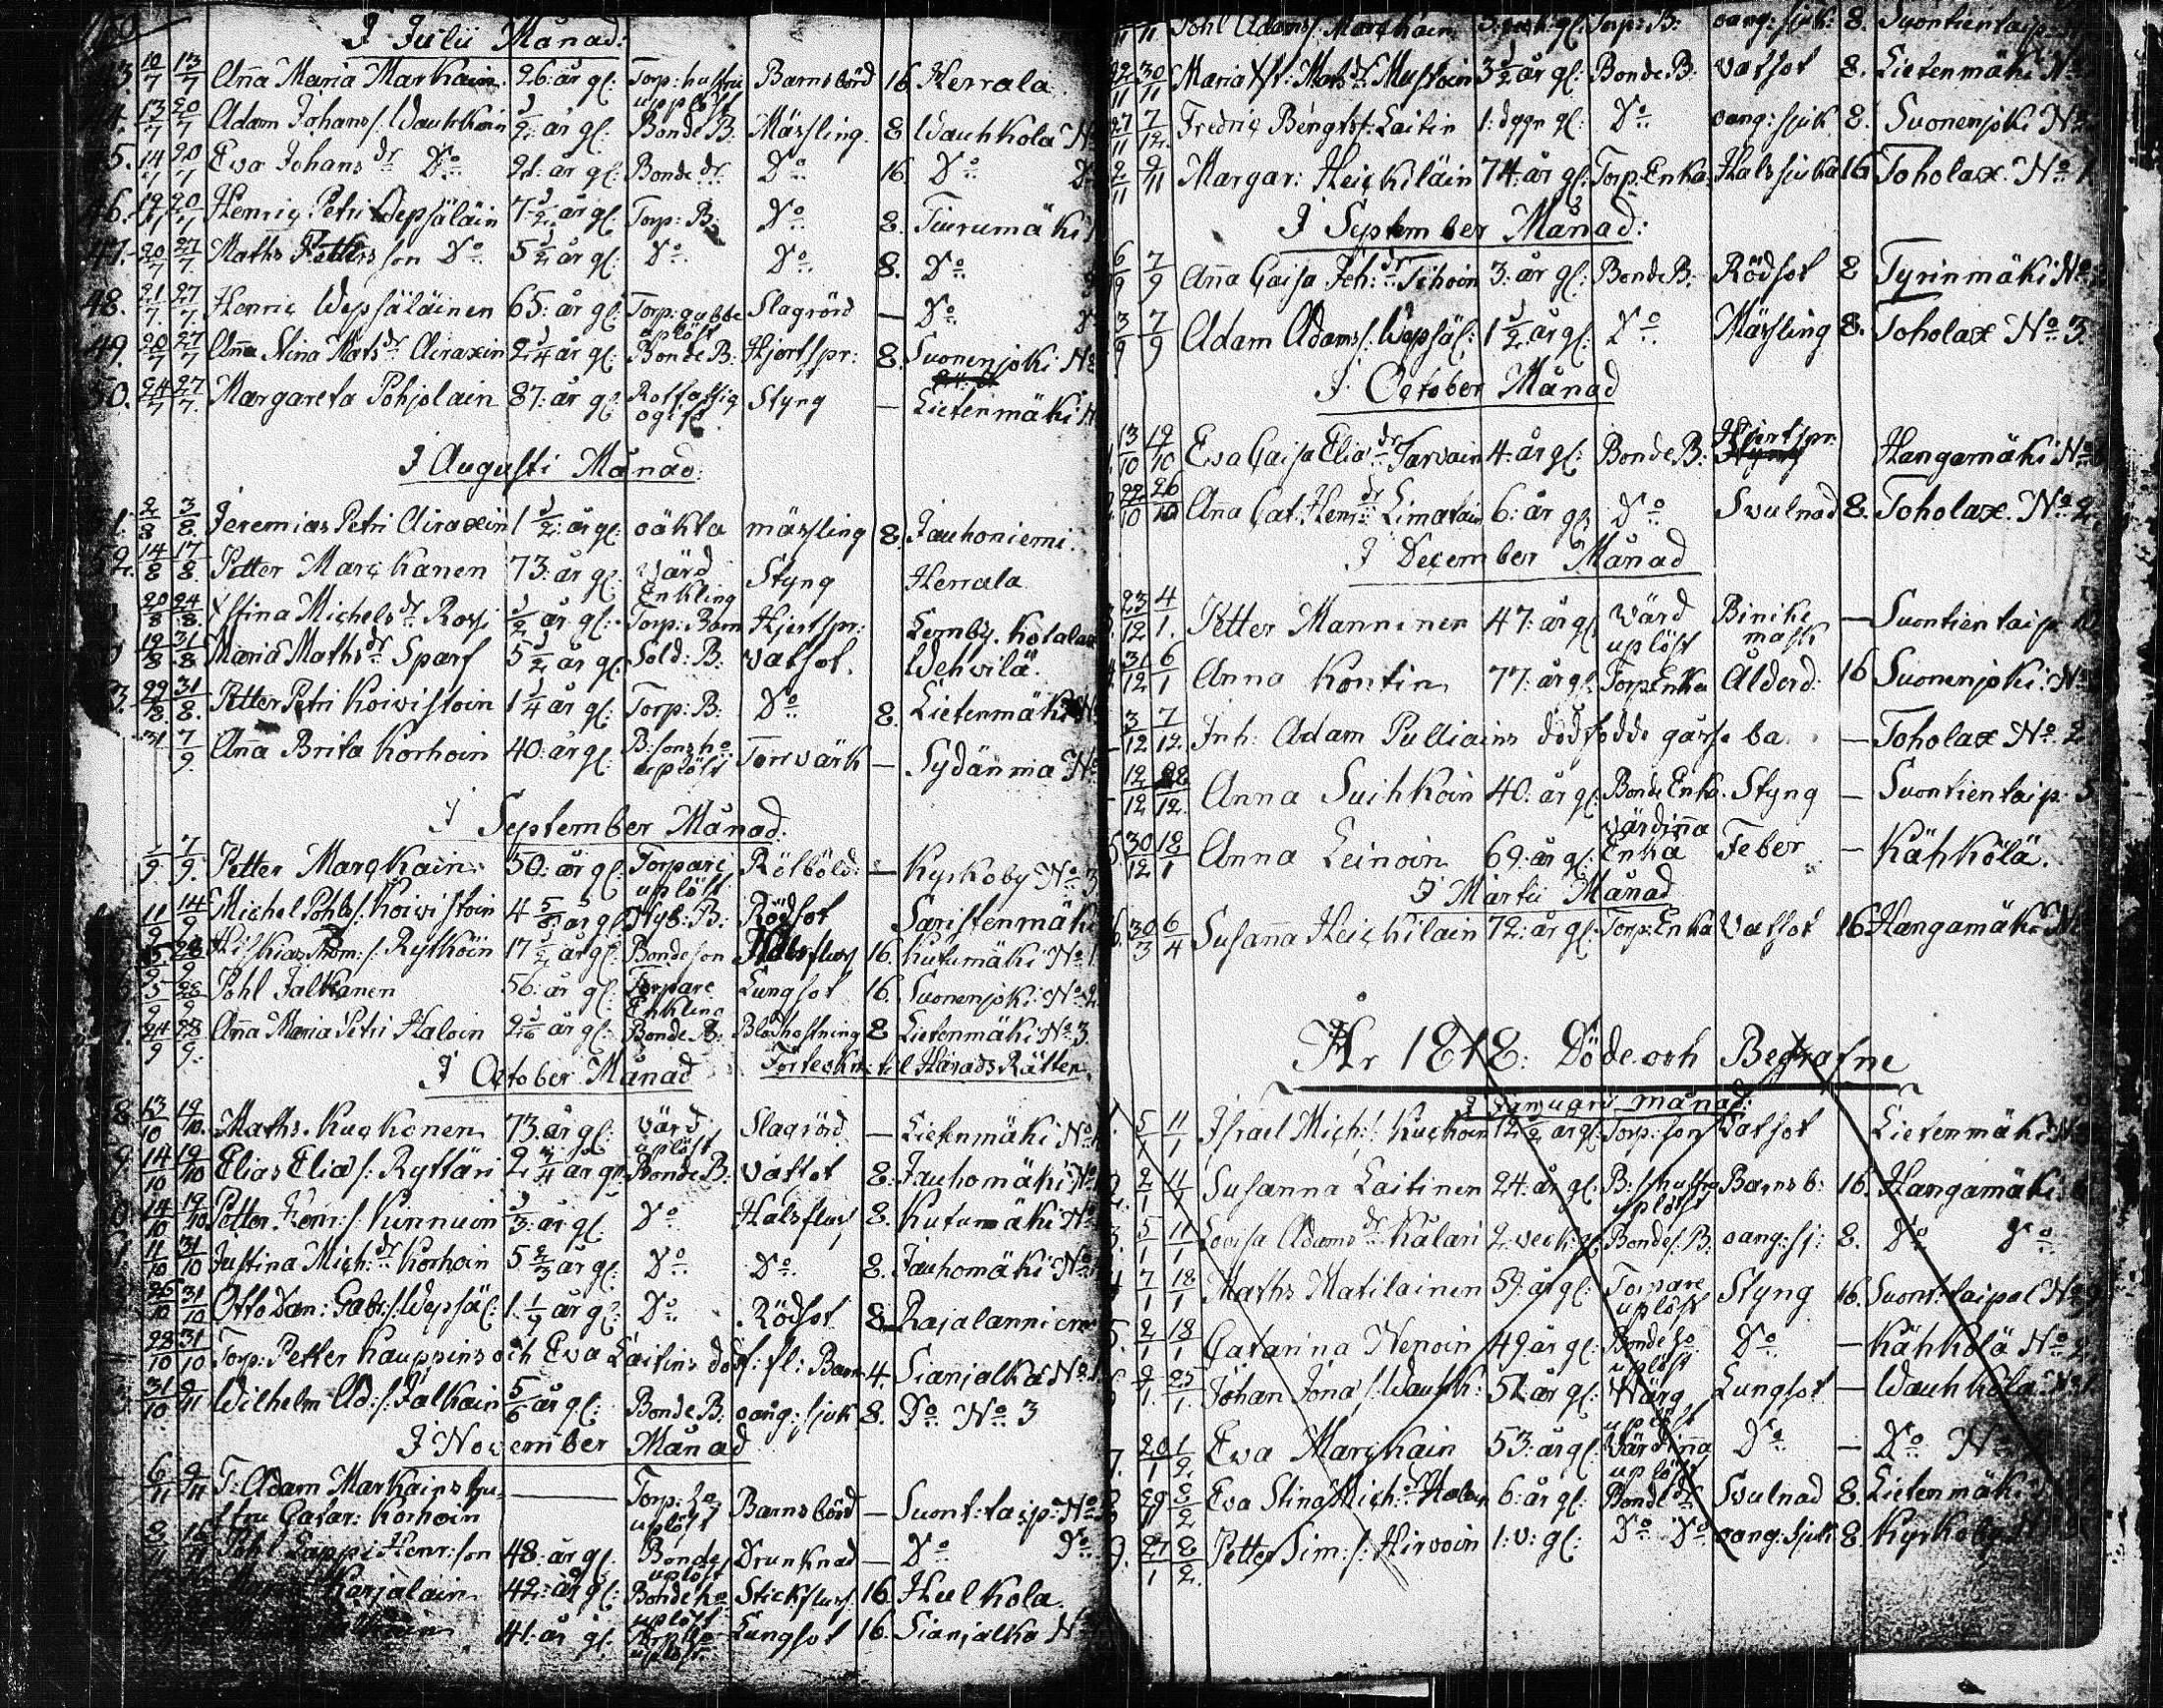 I Julii Månad:
3. 10/7 13/7 Anna Maria Markain 26: år gl: Torp: hustru upplöst Barnsbörd 16 Herrala
4. 13/7 20/7 Adam Johans s. Wauhkoin 1/2: år gl: Bonde B: Mässling 8 Wauhkola N
5. 14/7 20/7 Eva Johans dr Do 21: år gl: Bonde dr Do 16. Do D
46. 19/7 20/7 Henric Petri Wepsäläin 7 1/2 år gl: Torp: B: Do 8. Tiirumäki
47. 20/7 27/7 Maths Petterson Do 5 1/2 år gl: Do Do 8. Do
48. 21/7 27/7 Henric Wepsäläinen 65: år gl: Torp: gubbe uplöst Slagrörd — Do
49. 20/7 27/7 Anna Stina Mats dr Airaxin 2 1/4 år gl: Bonde B: Hjertspr: 8. Suonenjoki No
50. 24/7 27/7 Margareta Pohjolain 87: år gl: Rotfattig ogift Styng — Lietenmäki N
I Augusti Månad:
1. 2/8 3/8 Jeremias Petri Airaxin 1 1/2: år gl: oäkta mässling 8. Jauhoniemi.
52. 14/8 17/8 Petter Marckanen 73: år gl: Wärd Enkling Styng Herrala
20/8 24/8 Stina Michels dr Rossi 1/2 år gl: Torp: Barn Hjertspr: Lemby. Kotalax
19/8 31/8 Maria Maths dr Sparf 5 1/2 år gl: Sold: B: Vatsot. Wehvilä.
3. 29/8 31/8 Petter Petri Koivistoin 1 1/4 år gl: Torp: B: Do 8. Lietenmäki N
31 7/9 Anna Brita Korhoin 40: år gl: B: sons ho uplöst Torrvärk — Sydänma No
I September Månad:
7/9 Petter Marckain 50: år gl: Torpare uplöst Rötböld: — Kyrkoby No 3
11/9 14/9 Michel Pohls s. Koivistoin 4 5/6 år gl: Nyb: B: Rödsot Saristenmäki
15/9 28/9 Hiskias Thom: s. Rytköin 17 1/2 år gl: Bondeson Halsfluss 16. Kutumäki No 1
5/9 28/9 Pohl Jalkanen 56: år gl: Torpare Enkling Lungsot 16. Suonenjoki No 2
24/9 28/9 Anna Maria Petri Haloin 2 1/6 år gl: Bonde B: Blodhostning 8 Lietenmäki No 3
I October Månad Förteckn: til Härads Rätten
8. 13/10 19/10 Maths Kuckonen 73. år gl: Wärd uplöst Slagrörd — Lietenmäki No
9. 14/10 19/10 Elias Elias s. Ryttäri 2 3/4 år gl: Bonde B: Vatsot 8. Jauhomäki No
0. 14/10 19/10 Petter Henr: s. Kinnuin 1/3: år gl: Do Halsfluss 8. Kutumäki No
11/10 31/10 Justina Mich: dr Korhoin 5 2/3 år gl: Do Do 8. Jauhomäki No
26/10 31/10 Otto Dan: Gabr: s. Wepsäl: 1 1/9 år gl: Do Rödsot 8. Rajalanniemi
28/10 31/10 Torp: Petter Kauppins och Eva Laitins döf: fl: Barn 4. Sianjalka No 1
31/10 9/11 Wilhelm Ad: s. Jalkain 5/6 år gl: Bonde B: oang: sjuk 8. Do No 3
I November Månad
6/11 9/11 T: Adam Markains hu- Torp: ho uplöst Barnsbörd — Suont: taip: No
stru Catar: Korhoin
8/11 16/11 Pohl Lappi Henr: son 48: år gl: Bonde uplöst Drunknad — Do Do
Karjalain 42: år gl: Bonde ho uplöst Stickfluss 16 Hulkola.
41. år gl. Torp ho uplöst Lungsot 16. Sianjalka N
11 11 Pohl Adams s. Marckain 3: veck: gl: Torp: B: oang: sjuk: 8. Suontientaip
22/11 30/11 Maria St: Mats dr Mustoin 3 1/2 år gl: Bonde B: Vatsot 8. Lietenmäki No
27/11 7/12 Fredric Bengts s. Laitin 1: dygn gl: Do oang: sjuk 8. Suonenjoki No 2
2/11 9/11 Margar: Heickiläin 74: år gl: Torp. Enka Halssjuka 16 Toholax No 1
I September Månad:
6/9 7/9 Anna Caisa Joh: dr Tihoin 3: år gl: Bonde B: Rödsot 8 Tyrinmäki No
3/9 7/9 Adam Adams s. Wepsäl: 1 1/2 år gl: Do Mässling 8. Toholax No 3.
I October Månad
13/10 19/10 Eva Caisa Elias dr Tarvain 4: år gl: Bonde B: Hjertspr: Hangamäki No
22/10 26/10 Anna Cat: Henr dr Limatain 6: år gl: Do Svulnad 8. Toholax No 2
I December Månad
23/12 4/1 Petter Manninen 47: år gl: Wärd uplöst Binike mask — Suontientaip
31/12 6/1 Anna Kontin 77: år gl: Torp Enka Ålderd: 16 Suonenjoki: No
3/12 7/12 Inh: Adam Pulliains dödfödde gåsse ba — Toholax No 2
12/12 22/12 Anna Suihkoin 40: år gl: Bonde Enka Styng — Suontientaip. 3
5. 30/12 18/1 Anna Leinoin 69: år gl: Värdinna Enka Feber — Kähkölä.
I Martii Månad
6. 30/3 6/4 Susanna Heickilain 72: år gl: Torp: Enka Vatsot 16 Hangamäki No
År 1818. Döde och Begrafne
I Januari månad:
5/1 11/1 Israel Mich: s. Kuckoin 12 1/2 år gl: Torp: son Vatsot Lietenmäki
2. 2/1 11/1 Susanna Laitinen 24: år gl: B: s hustru uplöst Barnsb: 16. Hangamäki
3. 5/1 11/1 Lovisa Adams dr Kalari 2. veck: gl: Bondes. B: oang: sj: 8. Do Do
4 7/1 18/1 Maths Matilainen 59: år gl: Torpare uplöst Styng 16. Suont: taipal No
5. 2/1 18/1 Catarina Nenoin 49: år gl: Bonde ho uplöst Do — Kähkölä No 2
6 9/1 25/1 Johan Jonas s. Wauhk: 52 år gl: Wärd uplöst Lungsot — Wauhkola No 1.
7. 20/1 1/2 Eva Marckain 53: år gl: Wärdinna uplöst Do — Do No
29/1 8/2 Eva Stina Mich: dr Haloin 6: år gl: Bonde dr Svulnad 8. Lietenmäki
9. 27/1 8/2 Petter Sim: s. Hirvoin 1: v: gl: Do Do oang: sjuk 8 Kyrkoby